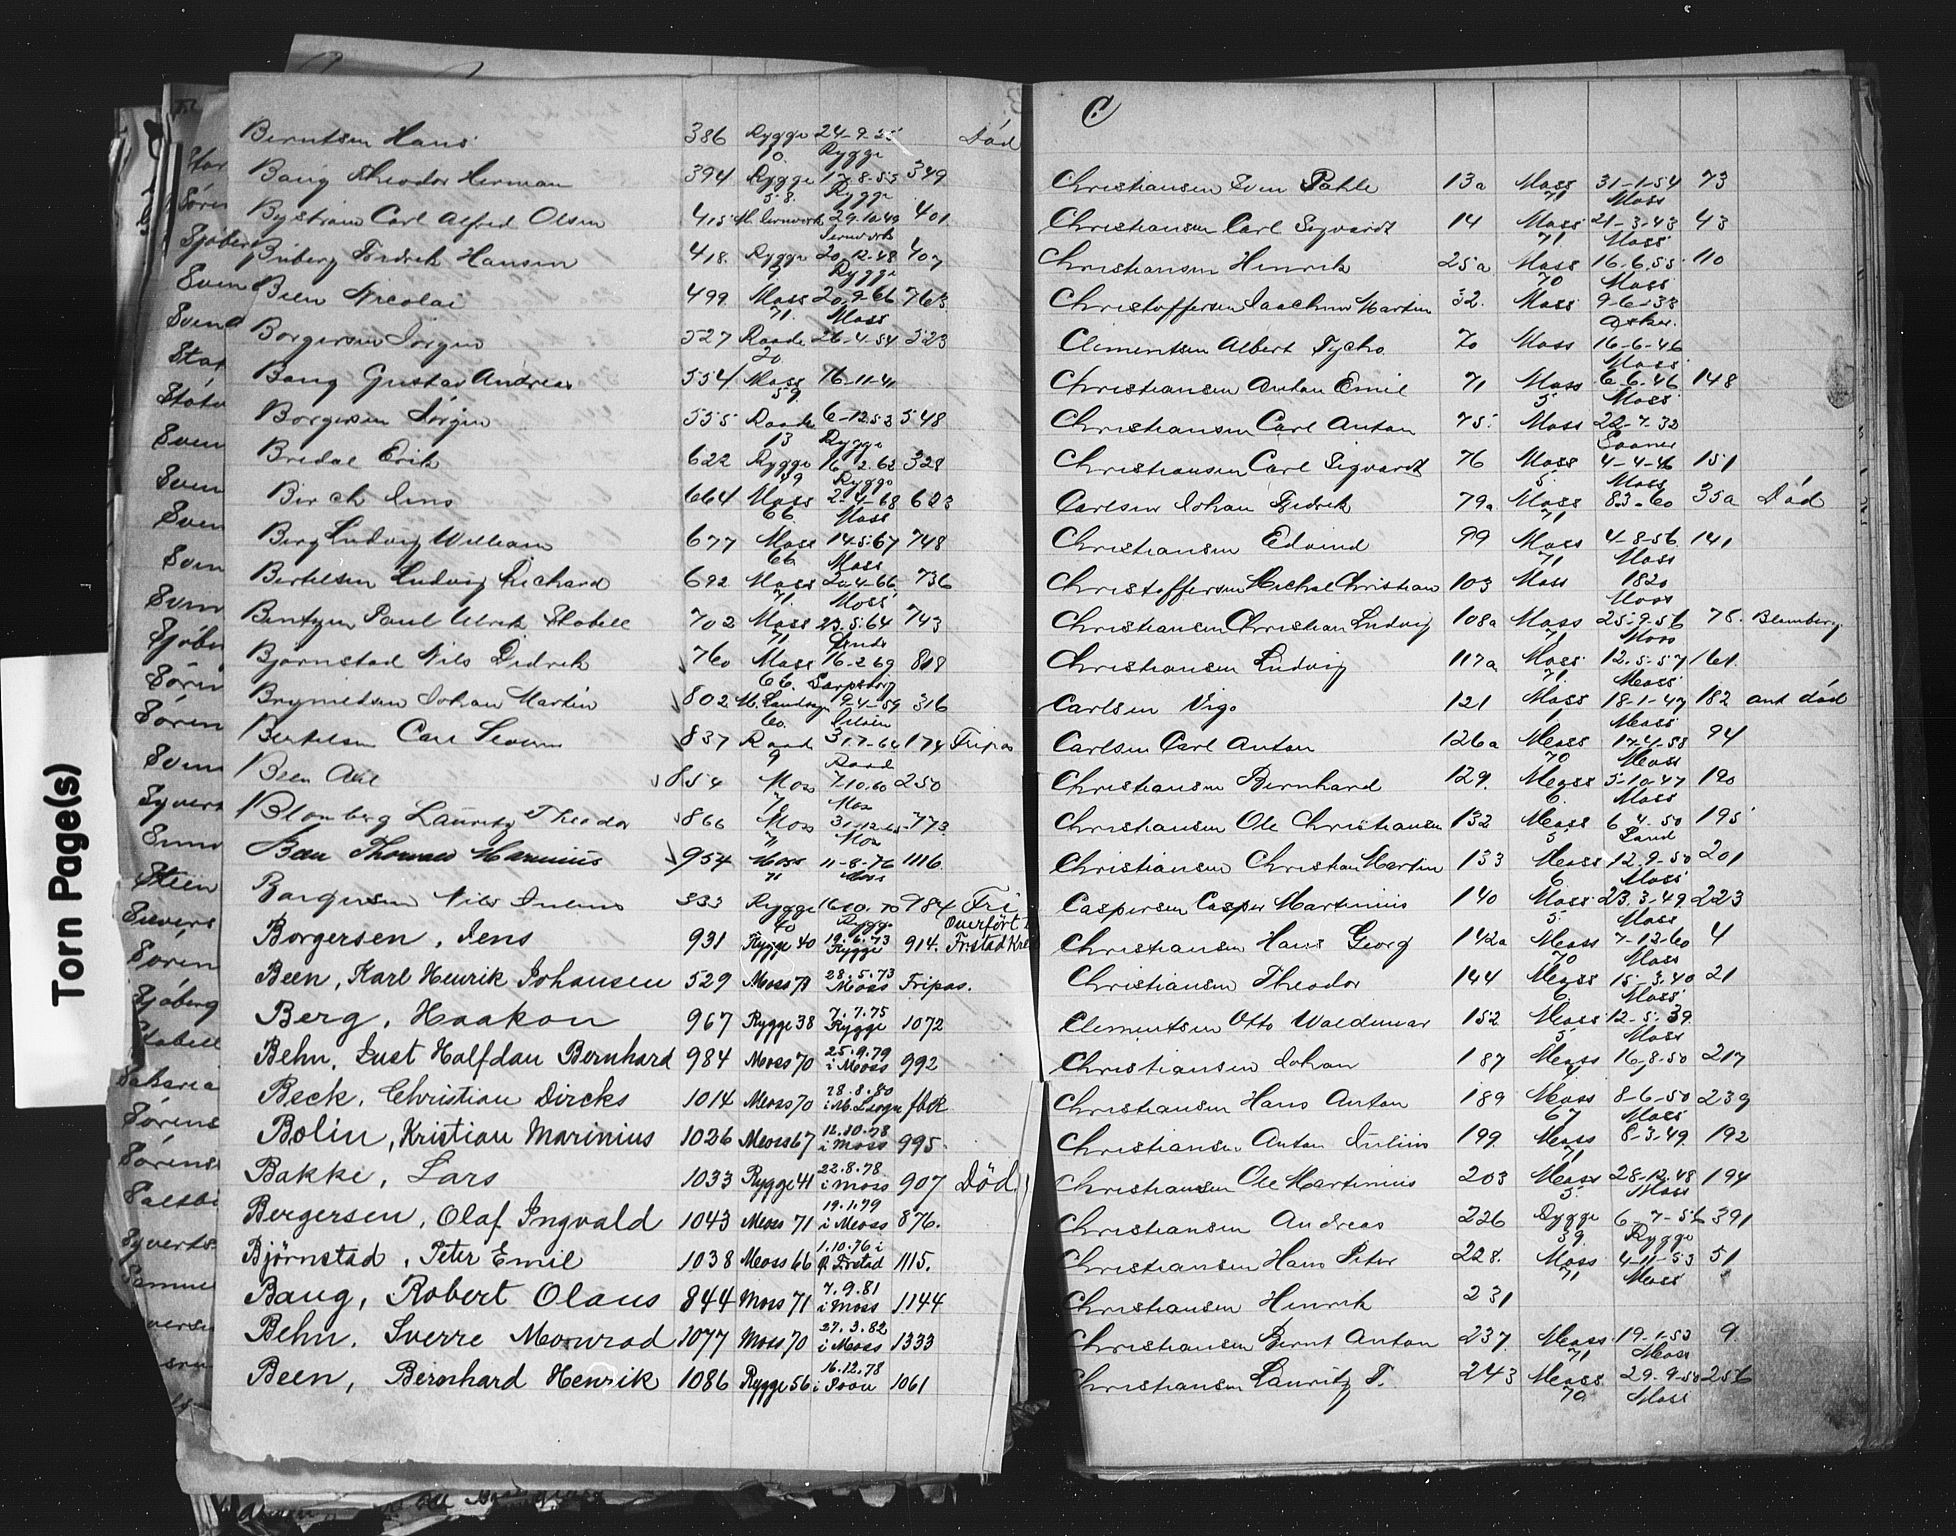 Torn Page(s)
Berntsen Hans 386 Rygge 24-9-25 Død
Rygge
Bang Theodor Herman 394 Rygge 17-8-53 349
58. Rygge
Byström Carl Alfred Olsen 415 29.10.49 401
Jernverk
Fredrik Hansen 418. Rygge 20-12-48 407
Rygge
Bien Nicolai 499 Moss 20.9.66 763
71. Moss
Borgersen Jørgen 527 Raade 26-4-54 523
20
Bang Gustav Andreas 554 Moss 16-11-41
59.
Borgersen Jørgen 555 Raade 6-12.53 548
13 Rygge
Bredal Erik 622 Rygge 16.2.62 328
Rygge
Birch Jens 664 Moss 2-4-68 623
66. Moss
Berg Ludvig William 677 Moss 14.5.67 748
66 Moss
Bertelsen Ludvig Richard 692 Moss 20-4-66 736
71. Moss
Paul Ulrik Stabell 702 Moss 23.5.64 743
71
Bjørnstad Nils Didrik 760 Moss 16-2.69 818
66. Sarpsborg
Brynildsen Johan Martin 802 M. Landsogn 9-4-59 316
60.
Bertelsen Carl Severin 837 Raade 31.7-64 174 Fripas
9 Raad
Been Axel 854 Moss 7.10.60 250
70 Moss
Blomberg Lauritz Theodor 866 Moss 31.12.65 773
71 Moss
Been Thomas Marinius 954 Moss 11-8-76 1116.
71 Moss
Borgersen Nils Julius 333 Rygge 16.10.70 984 Fri
40 Rygge Overført
Borgersen, Jens 931 Rygge 40 19.6.73 914. Frstad
Rygge
Been, Karl Henrik Johansen 529 Moss 71 28.5.73 Fripas.
Moss
Berg, Haakon 967 Rygge 38 7.7.75 1072
Rygge
Behn, Just Halfdan Bernhard 984 Moss 70 25.9.79 992
i Moss
Beck, Christian Dircks 1014 Moss 70 28.8.80
i M. Lsogn
Bolin, Kristian Marinius 1026 Moss 67 12.10.78 995.
i Moss
Bakke, Lars 1033 Rygge 41 22.8.78 907 Død.
i Moss
Bergersen, Olaf Ingvald 1043 Moss 71 19.1.79 876.
i Moss
Bjørnstad, Peter Emil 1038 Moss 66 1.10.76 i 1115.
Frstad
Bang, Robert Olaus 844 Moss 71 7.9.81 1144
i Moss
Behn, Sverre Monrad 1077 Moss 70 27.3.82 1333
i Moss
Been, Bernhard Henrik 1086 Rygge 56 16.12.78 1061
i Soon
C.
Christiansen Sven Pahle 13a Moss 31-1-54 73
71 Moss
Christiansen Carl Sigvardt 14 Moss 21-3-43 43
71 Moss
Christiansen Henrik 25a Moss 16.6.55 110
70 Moss
Christoffersen Joachim Martin 32. Moss 9-6-33
Asker.
Clementsen Albert Tycho 70 Moss 16-6-46
Moss
Christiansen Anton Emil 71 Moss 6-6.46 148
5 Moss
Christiansen Carl Anton 75. Moss 22-7.32
Christiansen Carl Sigvardt 76 Moss 4-4-46 151
5. Moss
Carlsen Johan Fredrik 79a Moss 8.3.-60 35a Død
71
Christiansen Edvind 99 Moss 4-8-56 141
71 Moss
Christoffersen Michal Christian 103 Moss 1820
Moss
Christiansen Christian Ludvig 108a Moss 25.9.56 78. Blomberg.
71 Moss
Christiansen Ludvig 117a Moss 12.5-57 161.
71. Moss
Carlsen Vigo 121 Moss 18-1-47 182 ant død
Moss
Carlsen Carl Anton 126a Moss 17-4-58 94
70 Moss
Christiansen Bernhard 129. Moss 5-10-47 190
6. Moss
Christiansen Ole Christiansen 132 Moss 6 4.50 195
5 Land
Christiansen Christian Martin 133 Moss 12.9-50 201
6 Moss
Caspersen Casper Martinius 140 Moss 23.3-49 223
5. Moss
Christiansen Hans Georg 142a Moss 7-12-60 4
70 Moss
Christiansen Theodor 144 Moss 15-3.40 21
6 Moss
Clementsen Otto Waldemar 152 Moss 12-5.39
5 Moss
Christiansen Johan 187 Moss 16-8-50 217
Christiansen Hans Anton 189 Moss 8-6-50 239
67 Moss
Christiansen Anton Julius 199. Moss 8-3.49. 192
71
Christiansen Ole Martinius 203 Moss 28-12.48 194
5. Moss
Christiansen Andreas 226 Rygge 6-7-56 391
39. Rygge
Christiansen Hans Peter 228. Moss 4-11-53 51
71 Moss
Christiansen Henrik 231
Christiansen Bernt Anton 237. Moss 19-1-53 9
71 Moss
Christiansen Lauritz T. 243 Moss 29-9-50 256
70 Moss